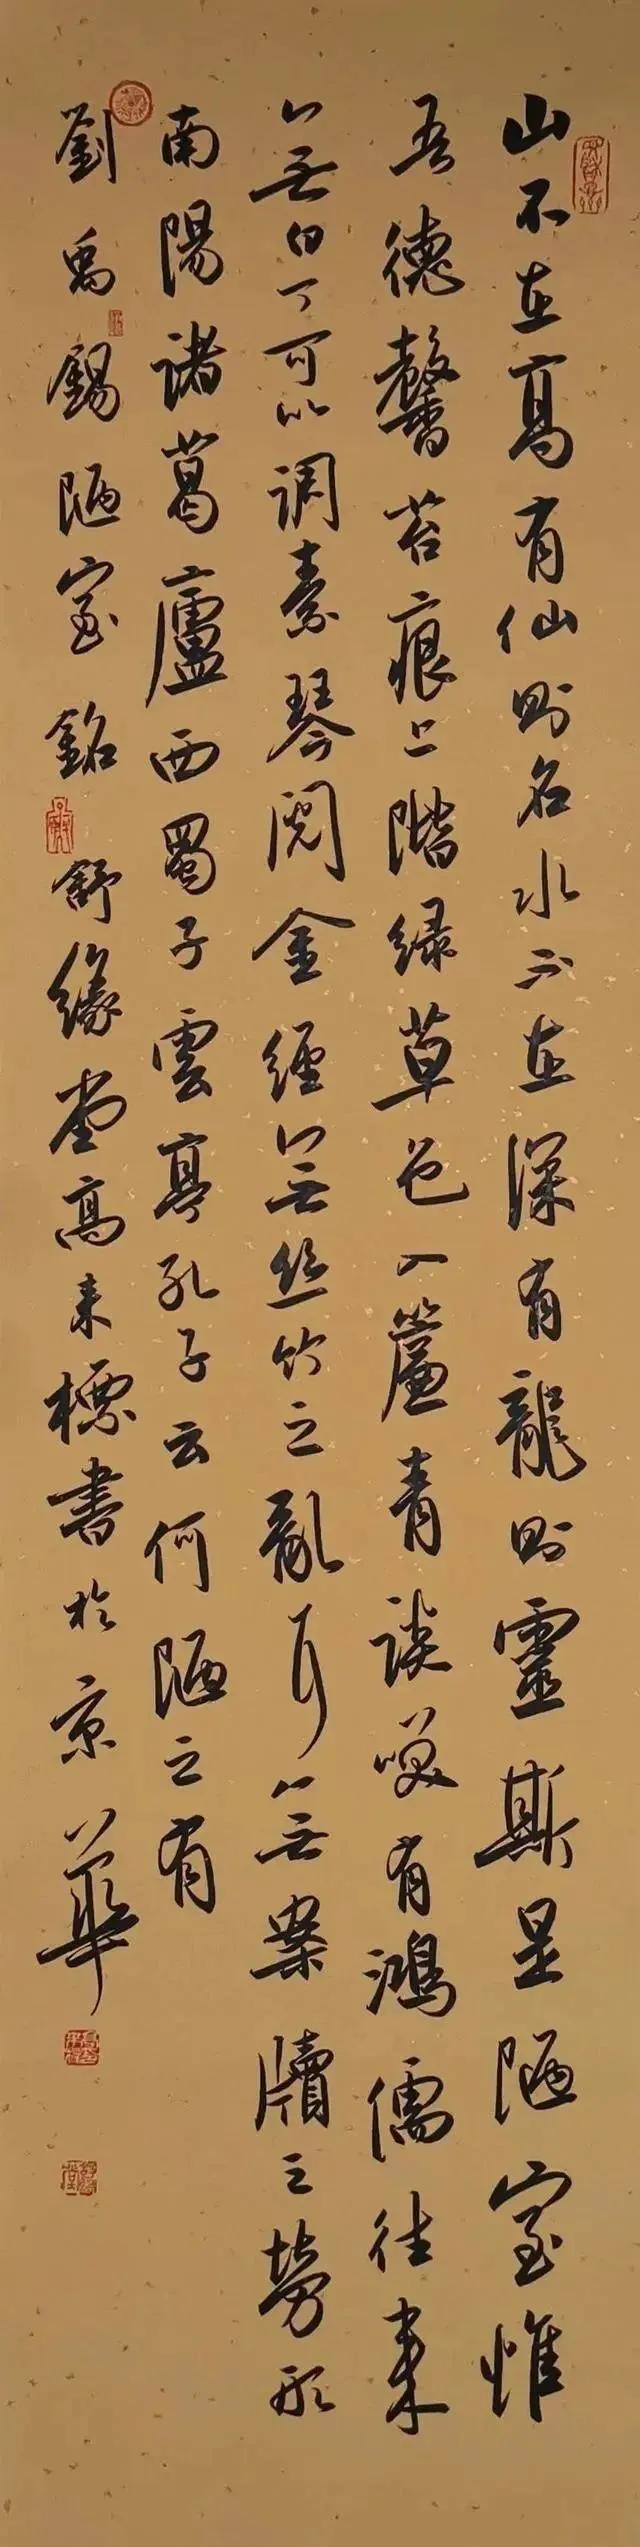 山不在高有仙则名水不在深有龍则靈斯是陋室惟
吾德馨苔痕上階緑草色入簾青談咲有鴻儒往来
無白丁可以調素琴閲金經無丝竹之亂耳無案牘之勞形
南陽諸葛廬西蜀子雲亭孔子云何陋之有
劉禹錫陋室銘舒缘堂高来標書於京華